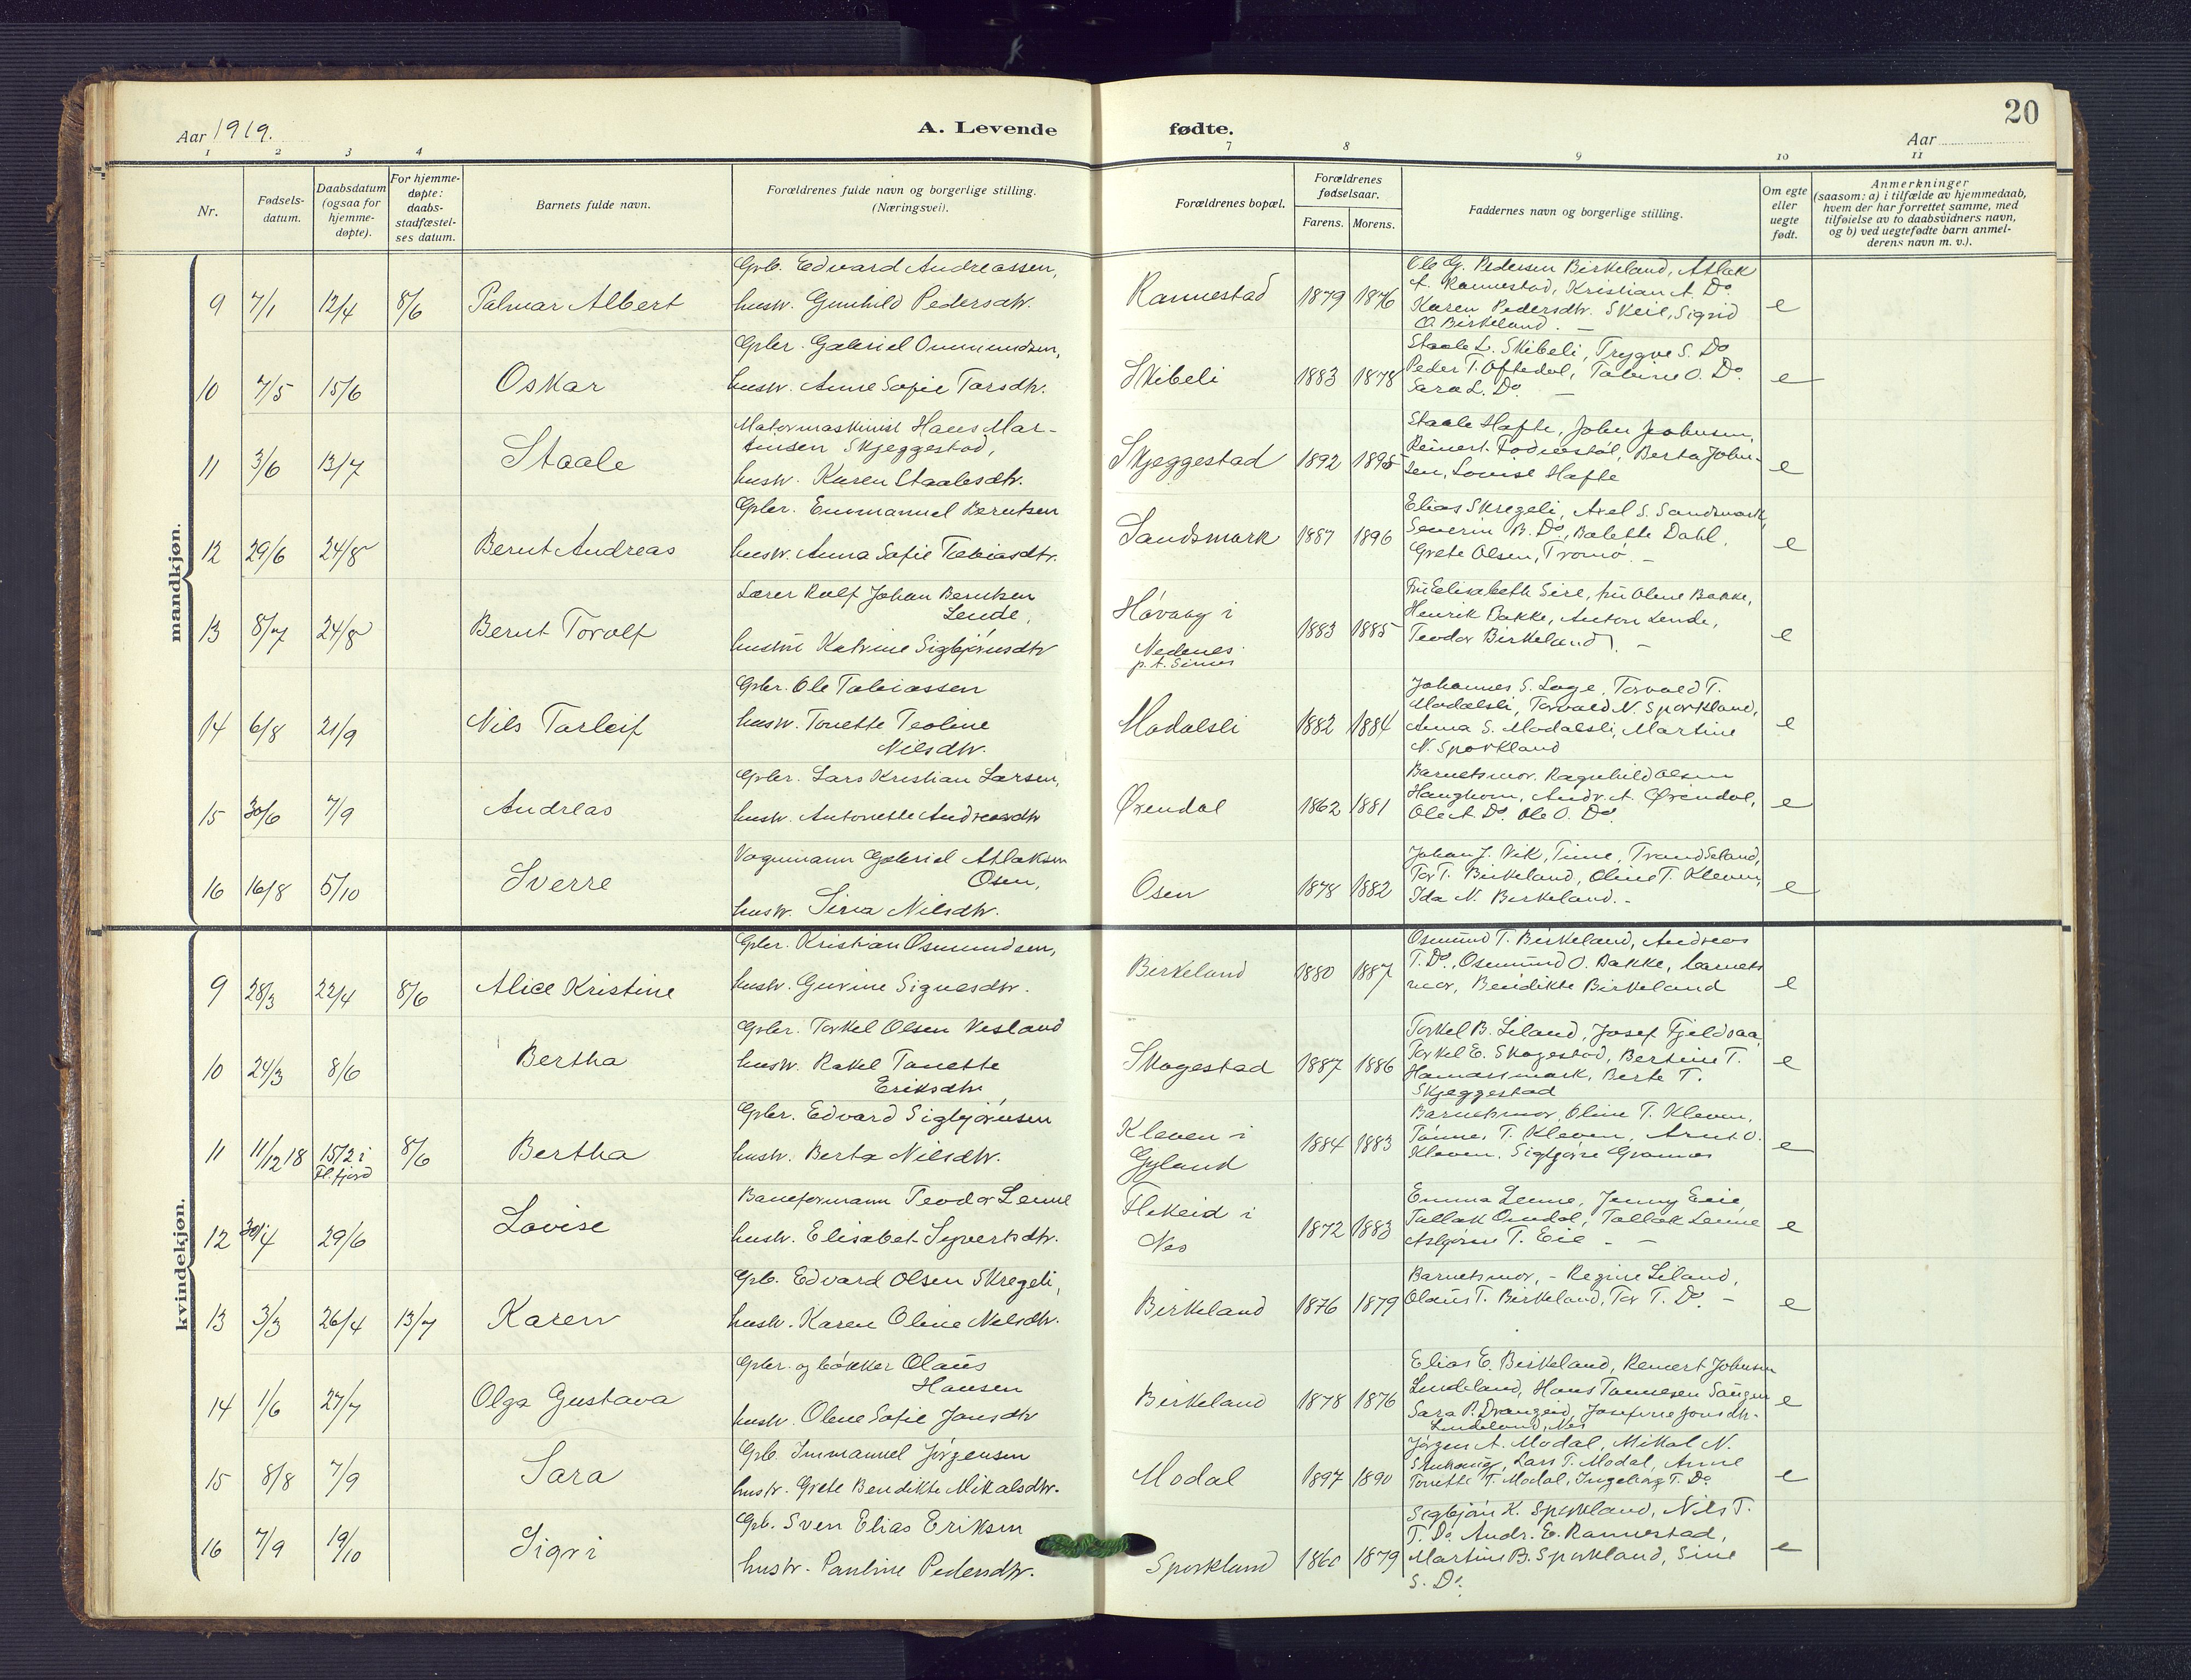 Aar 1919.
A. Levende
fødte.
20
Aar
1 2 3 4
7 8 9 10 11
Nr.
Fødsels-
datum.
Daabsdatum
(ogsaa for
hjemme-
døpte).
For hjemme-
døpte:
daabs-
stadfæstel-
ses datum.
Barnets fulde navn.
Forældrenes fulde navn og borgerlige stilling.
(Næringsvei).
Forældrenes bopæl.
Forældrenes
fødselsaar.
Farens. Morens.
Faddernes navn og borgerlige stilling.
Om egte
eller
uegte
født.
Anmerkninger
(saasom: a) i tilfælde av hjemmedaab,
hvem der har forrettet samme, med
tilføielse av to daabsvidners navn,
og b) ved uegtefødte barn anmel-
derens navn m. v.).
mandkjøn.
9 7/1 12/4 8/6 Palmar Albert
Gpb. Edvard Andreassen,
hustr. Gunhild Pedersdtr.
Rannestad 1879 1876
Ole G. Pedersen Birkeland, Atlak
A. Rannestad, Kristian A. Do.
Karen Pedersdtr. Skeie, Sigrid
O. Birkeland. -
e
10 7/5 15/6 Oskar
Gpbr. Gabriel Ommundsen,
hustr. Anne Sofie Tarsdtr.
Skibeli 1883 1878
Staale L. Skibeli, Trygve S. Do
Peder T. Oftedal, Tabine O. Do.
Sara L. Do. -
e
11 3/6 13/7 Staale
Motormaskinist Hans Mar-
tinsen Skjeggestad,
hustr. Karen Staalesdtr.
Skjeggestad 1892 1895
Staale Hafte, John Johnsen,
Reinert Fodnestøl, Berta John-
sen, Louise Hafte
e
12 29/6 24/8 Bernt Andreas
Gpbr. Emmanuel Berntsen
hustr. Anna Sofie Tobiasdtr.
Sandsmark 1887 1896
Elias Skregeli, Axel S. Sandsmark,
Severin B. Do, Balette Dahl,
Grete Olsen, Tromø. -
e
13 8/7 24/8 Bernt Torolf
Lærer Rolf Johan Berntsen
Lende,
hustru Katrine Sigbjørnsdtr
Høvaag i
Nedenes
p.t. Sirnes
1883 1885
Fru Elisabeth Sire, fru Olene Bakke,
Henrik Bakke, Anton Lende,
Teodor Birkeland. -
e
14 6/8 21/9 Nils Tarleif
Gpbr. Ole Tobiassen
hustr. Tonette Teoline
Nilsdtr.
Modalsli 1882 1884
Johannes S. Lage, Torvald T.
Modalsli, Torvald N. Sporkland,
Anna S. Modalsli, Martine
N. Sporkland
e
15 30/6 7/9 Andreas
Gpbr. Lars Kristian Larsen,
hustr. Antonette Andreasdtr
Ørendal 1862 1881
Barnets mor, Ragnhild Olsen
Haughom, Andr. A. Ørendal,
Ole A. Do. Ole O. Do.
e
16 16/8 5/10 Sverre
Vognmann Gabriel Atlaksen
Osen,
hustr. Siria Nilsdtr.
Osen 1878 1882
Johan J. Vik, Time, Trand Seland,
Tor T. Birkeland, Oline T. Kleven,
Ida N. Birkeland. -
e
kvindekjøn.
9 28/3 22/4 8/6 Alice Kristine
Gpbr. Kristian Osmundsen,
hustr. Gurine Signesdtr.
Birkeland 1880 1887
Osmund T. Birkeland, Andreas
T. Do., Osmund O. Bakke, barnets
mor, Bendikte Birkeland
e
10 24/3 8/6 Bertha
Gpbr. Torkel Olsen Vesland
hustr. Rakel Tonette
Eriksdtr.
Skogestad 1887 1886
Torkel B. Liland, Josef Fjeldsaa,
Torkel E. Skogestad, Bertine T.
Hamarsmark, Berte T.
Skjeggestad
e
11 11/12 18 15/2 i
Fl.fjord
8/6 Bertha
Gpbr. Edvard Sigbjørnsen
hustr. Berta Nilsdtr.
Kleven i
Gyland
1884 1883
Barnets mor, Oline T. Kleven,
Tønnes T. Kleven, Arnt O.
Kleven, Sigbjørn Grannes
e
12 30/4 29/6 Lovise
Baneformann Teodor Lenne
hustr. Elisabet Syvertsdtr.
Flikeid i
Nes
1872 1883
Emma Lenne, Jenny Eeie,
Tallak Omdal, Tallak Lenne
Asbjørn T. Eie - -
e
13 3/3 26/4 13/7 Karen
Gpb. Edvard Olsen Skregeli,
hustr. Karen Oline Nilsdtr.
Birkeland 1876 1879
Barnets mor, - Regine Liland,
Olaus T. Birkeland, Tor T. Do. -
e
14 1/6 27/7 Olga Gustava
Gpbr. og bøkker Olaus
Hansen
hustr. Olene Sofie Jonsdtr
Birkeland 1878 1876
Elias E. Birkeland, Reinert Johnsen
Lindeland, Hans Tønnesen
Sara P. Drangeid, Josefine Jonsdtr.
Lindeland, Nes
e
15 8/8 7/9 Sara
Gpb. Immanuel Jørgensen
hustr. Grete Bendikte Mikalsdtr.
Modal 1897 1890
Jørgen A. Modal, Mikal N.
Lars T. Modal, Anne
Tonette T. Modal, Ingeborg T. Do.
e
16 7/9 19/10 Sigvi
Gpb. Sven Elias Eriksen
hustr. Pauline Pedersdtr.
Sporkland 1860 1879
Sigbjørn K. Sporkland, Nils T.
T. Do. Andr. E. Rannestad,
Martine B. Sporkland, Sine
S. Do.
e